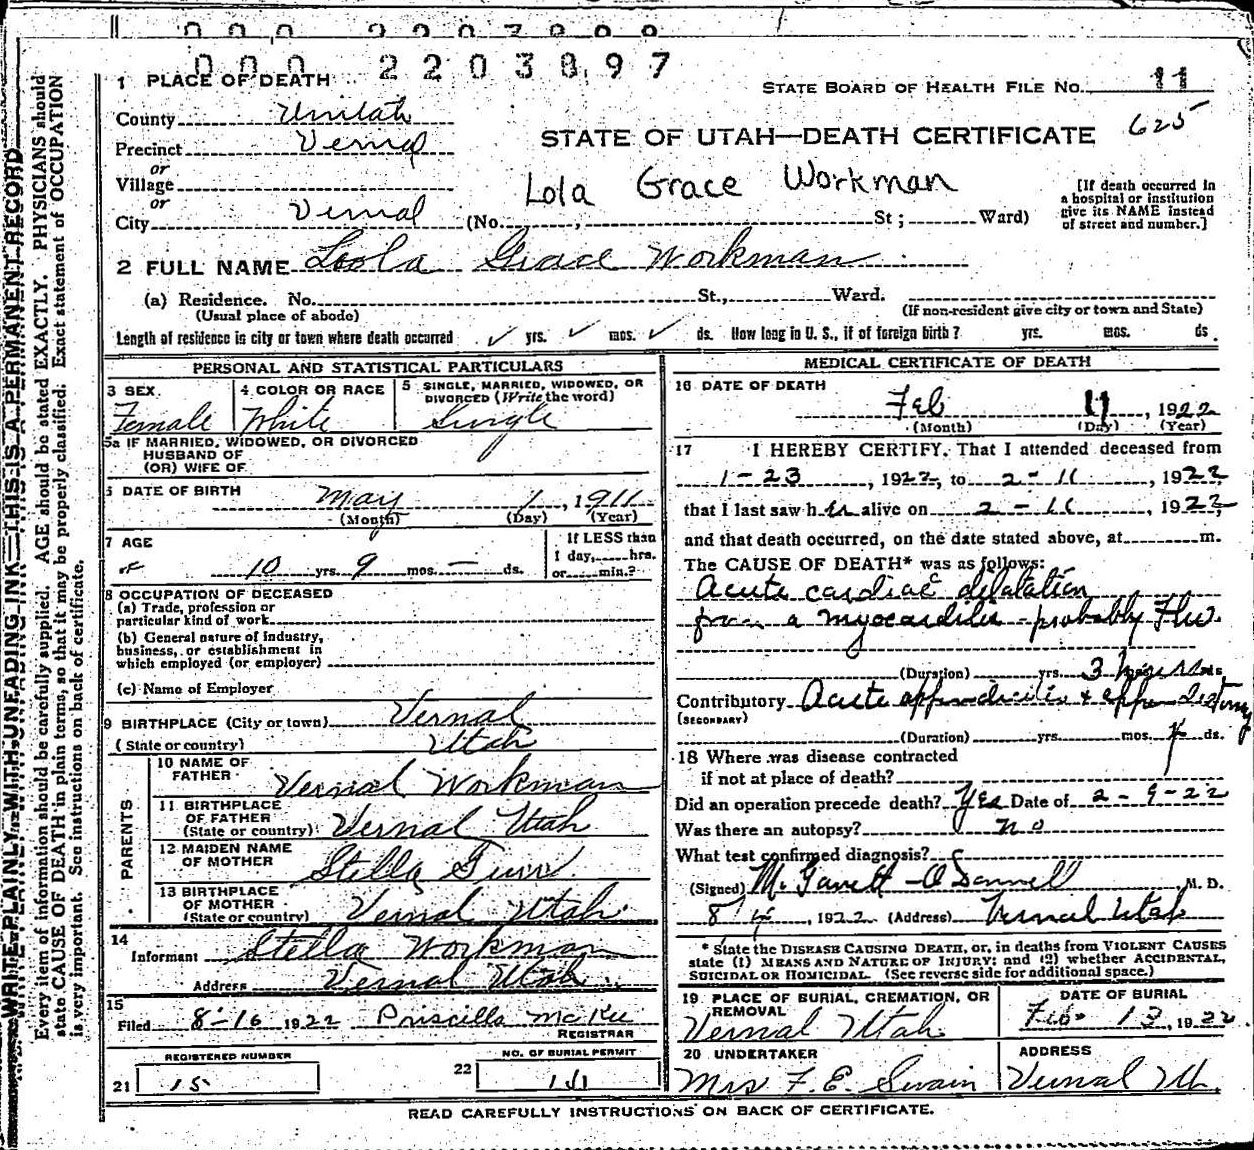 000 2203897
1 PLACE OF DEATH
STATE BOARD OF HEALTH FILE NO. 11
County Unitah
625
STATE OF UTAH—DEATH CERTIFICATE
Precinct Vernal
or
Village
Lola Grace Workman
or
City Vernal (No. , St ; Ward)
[If death occurred in a hospital or institution give its NAME instead of street and number.]
2 FULL NAME Loola Grace Workman
(a) Residence. No. St., Ward.
(Usual place of abode)
(If non-resident give city or town and State)
Length of residence in city or town where death occurred ✓ yrs. ✓ mos. ✓ ds. How long in U. S., if of foreign birth? yrs. mos. ds.
PERSONAL AND STATISTICAL PARTICULARS
3 SEX Female
4 COLOR OR RACE White
5 SINGLE, MARRIED, WIDOWED, OR DIVORCED (Write the word) Single
5a IF MARRIED, WIDOWED, OR DIVORCED
HUSBAND OF
(OR) WIFE OF
6 DATE OF BIRTH May 1, 1911
(Month) (Day) (Year)
7 AGE
10 yrs. 9 mos. — ds.
If LESS than
1 day, hrs.
or min.?
8 OCCUPATION OF DECEASED
(a) Trade, profession or
particular kind of work
(b) General nature of industry,
business, or establishment in
which employed (or employer)
(c) Name of Employer
9 BIRTHPLACE (City or town) Vernal
(State or country) Utah
PARENTS
10 NAME OF
FATHER Vernal Workman
11 BIRTHPLACE
OF FATHER
(State or country) Vernal Utah
12 MAIDEN NAME
OF MOTHER Stella
13 BIRTHPLACE
OF MOTHER
(State or country) Vernal Utah
14
Informant Stella Workman
Address Vernal Utah
15
Filed 8-16 1922 Priscilla McKee
REGISTRAR
REGISTERED NUMBER
21 15
NO. OF BURIAL PERMIT
22 111
MEDICAL CERTIFICATE OF DEATH
16 DATE OF DEATH
Feb 11, 1922
(Month) (Day) (Year)
17 I HEREBY CERTIFY. That I attended deceased from
1-23, 1922, to 2-11, 1922
that I last saw her alive on 2-11, 1922,
and that death occurred, on the date stated above, at m.
The CAUSE OF DEATH* was as follows:
Acute cardiac dilatation
from a myocarditis - probably Flu.
(Duration) yrs. 3 hours ds
Contributory Acute appendicitis & appendectomy
(SECONDARY)
(Duration) yrs. mos. ds.
18 Where was disease contracted
if not at place of death?
Did an operation precede death? Yes Date of 2-9-22
Was there an autopsy? no
What test confirmed diagnosis?
(Signed) M. Garrett-O'Donnell M. D.
1922 (Address) Vernal Utah
* State the DISEASE CAUSING DEATH, or, in deaths from VIOLENT CAUSES
state (1) MEANS AND NATURE OF INJURY; and (2) whether ACCIDENTAL,
SUICIDAL OR HOMICIDAL. (See reverse side for additional space.)
19 PLACE OF BURIAL, CREMATION, OR
REMOVAL
Vernal Utah
DATE OF BURIAL
Feb 13, 1922
20 UNDERTAKER
Mrs F. E. Swain
ADDRESS
Vernal Ut.
READ CAREFULLY INSTRUCTIONS ON BACK OF CERTIFICATE.
WRITE PLAINLY WITH UNFADING INK—THIS IS A PERMANENT RECORD
Every item of information should be carefully supplied. AGE should be stated EXACTLY. PHYSICIANS should
state CAUSE OF DEATH in plain terms, so that it may be properly classified. Exact statement of OCCUPATION
is very important. See instructions on back of certificate.